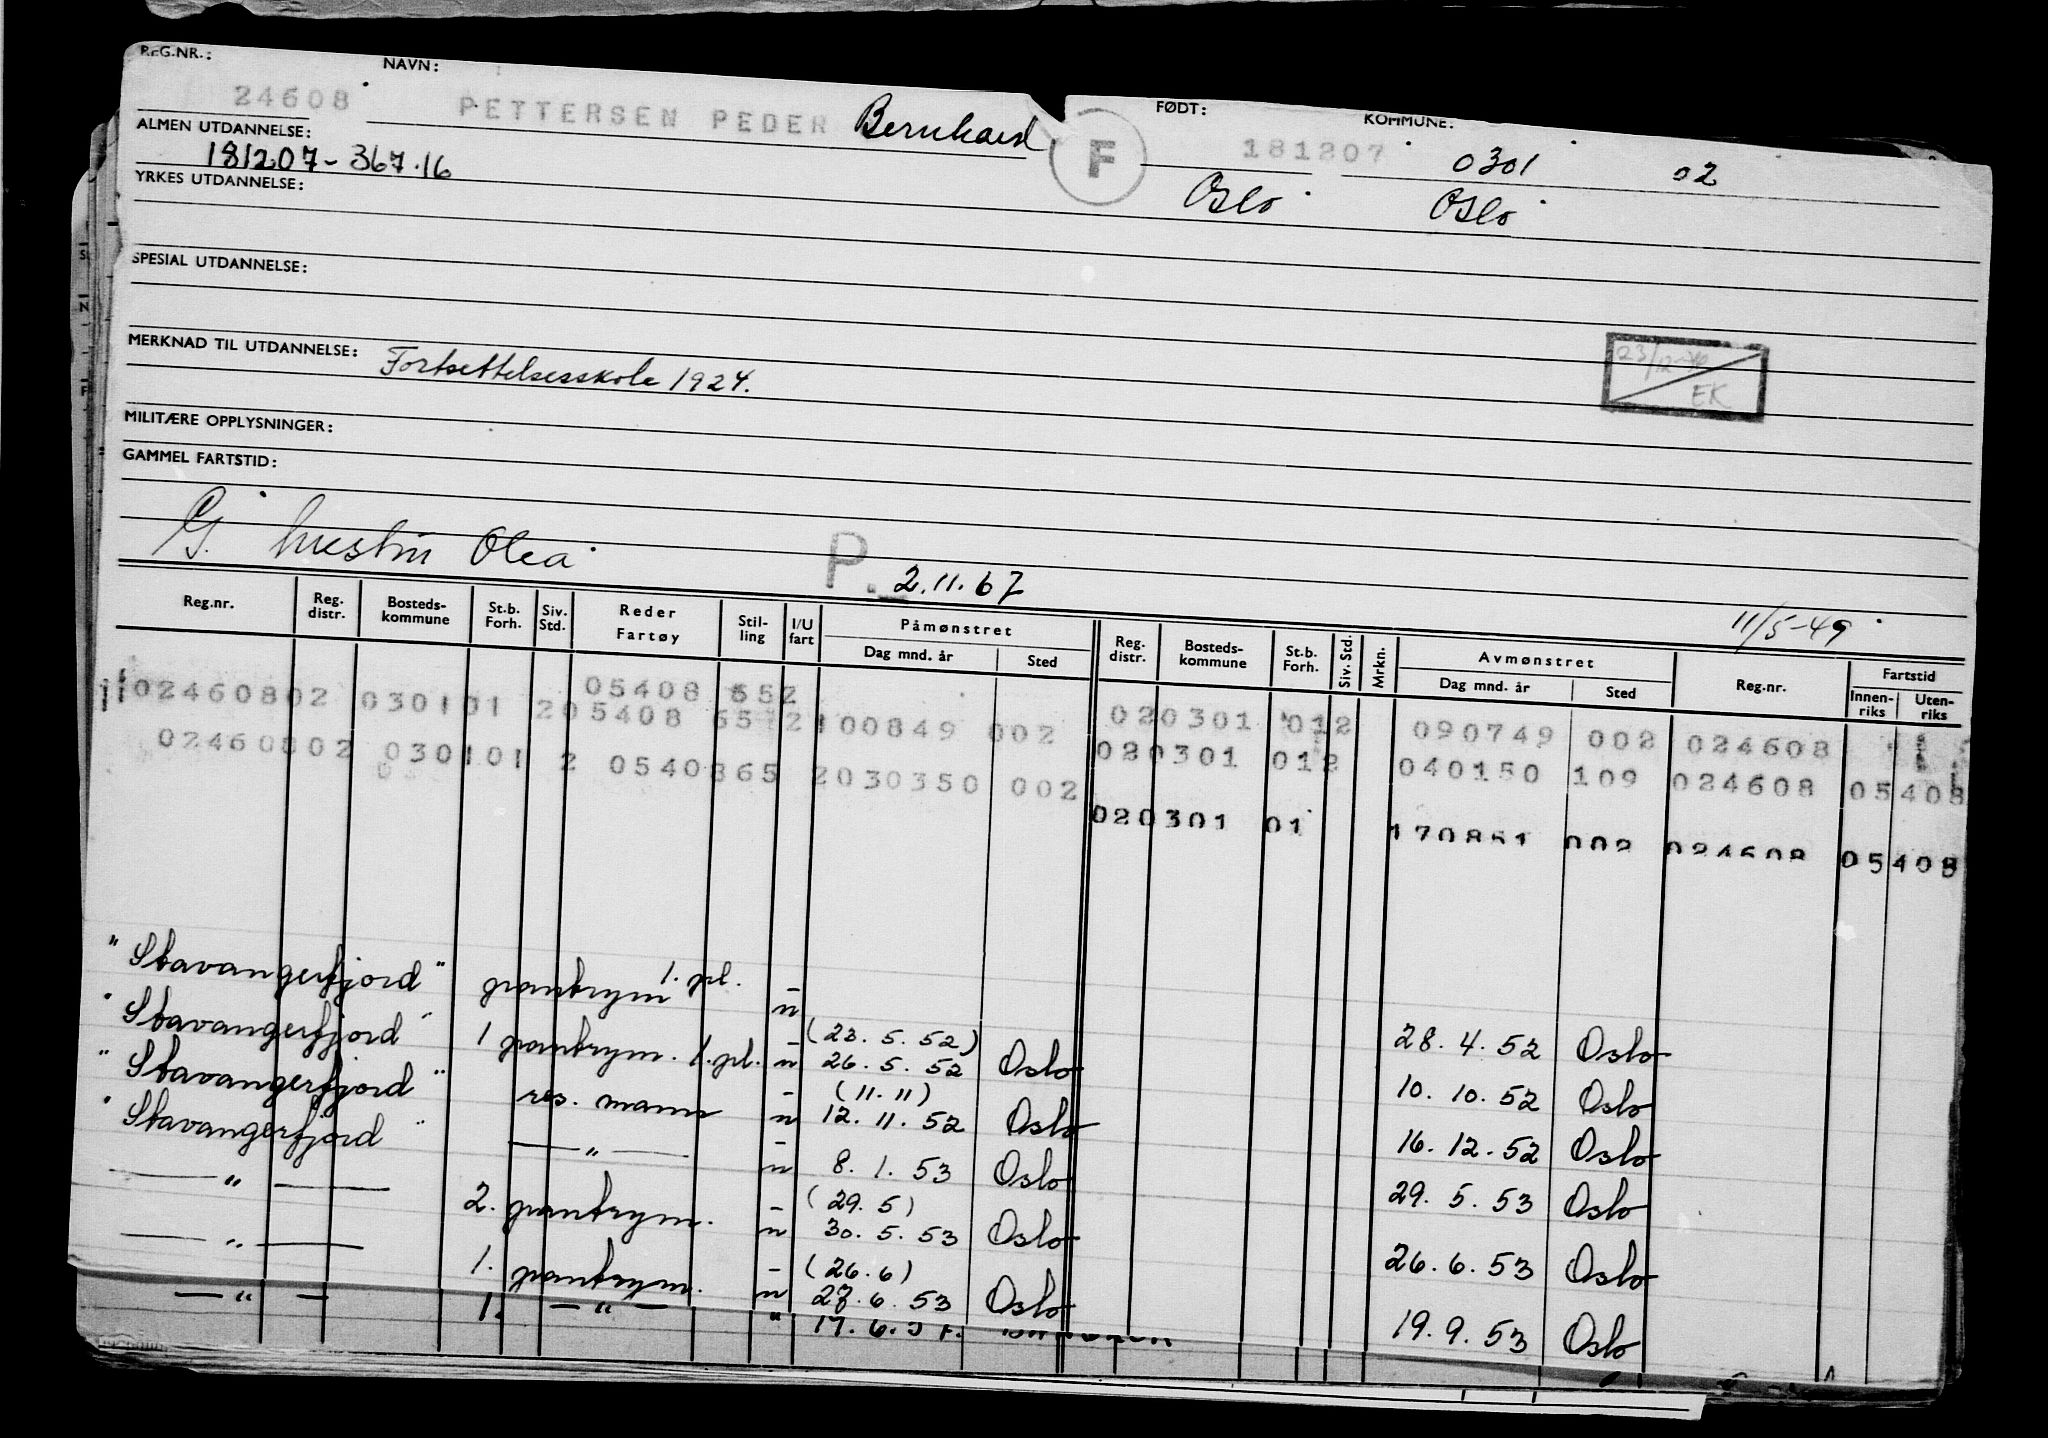 REG.NR.: NAVN: FØDT: KOMMUNE:
24608 PETTERSEN PEDER Bernhard F 181207 0301 02
ALMEN UTDANNELSE:
181207-367.16 Oslo Oslo
YRKES UTDANNELSE:
SPESIAL UTDANNELSE:
MERKNAD TIL UTDANNELSE: Fortsettelsesskole 1924.
23/12-
EK
MILITÆRE OPPLYSNINGER:
GAMMEL FARTSTID:
G. Olea P. 2.11.67
11/5-49
Reg.nr. Reg. distr. Bosteds-kommune St.b. Forh. Siv. Std. Reder Fartøy Stil-ling I/U fart Påmønstret Reg. distr. Bosteds-kommune St.b. Forh. Siv. Std. Mrkn. Avmønstret Reg.nr. Fartstid
Dag mnd. år Sted Dag mnd. år Sted Innen-riks Uten-riks
02460802 030101 2 05408 652
05408 65 2 100849 002 020301 012 090749 002 024608
02460802 030101 2 05408 65 2030350 002 020301 012 040150 109 024608 05408
020301 01 170851 002 024608 05408
"Stavangerfjord" pantrym 1.pl. - u 28.4.52 Oslo
"Stavangerfjord" 1 pantrym. 1.pl. - u (23.5.52) 26.5.52 Oslo 10.10.52 Oslo
"Stavangerfjord" res. mann - u (11.11) 12.11.52 Oslo 16.12.52 Oslo
"Stavangerfjord" — " — - u 8.1.53 Oslo 29.5.53 Oslo
— " — 2. pantrym. - u (29.5) 30.5.53 Oslo 26.6.53 Oslo
— " — 1. pantrym. - u (26.6) 27.6.53 Oslo 19.9.53 Oslo
— " — 1. — " — " 17.6.